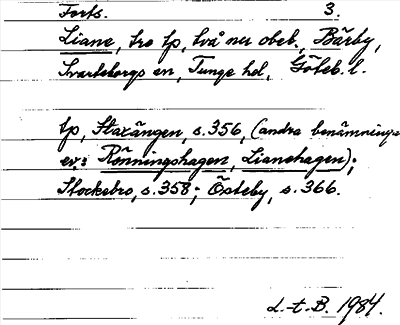 Forts. 3.
Liane, tro tp, två nu obeb., Bärby,
Svarteborgs sn, Tunge hd, Göteb. l.
tp, Staxängen, s. 356, (andra benämningar
ex: Rönningshagen, Lianehagen);
Stockebro, s. 358; Östeby, s. 366.
L-t-B. 1984.